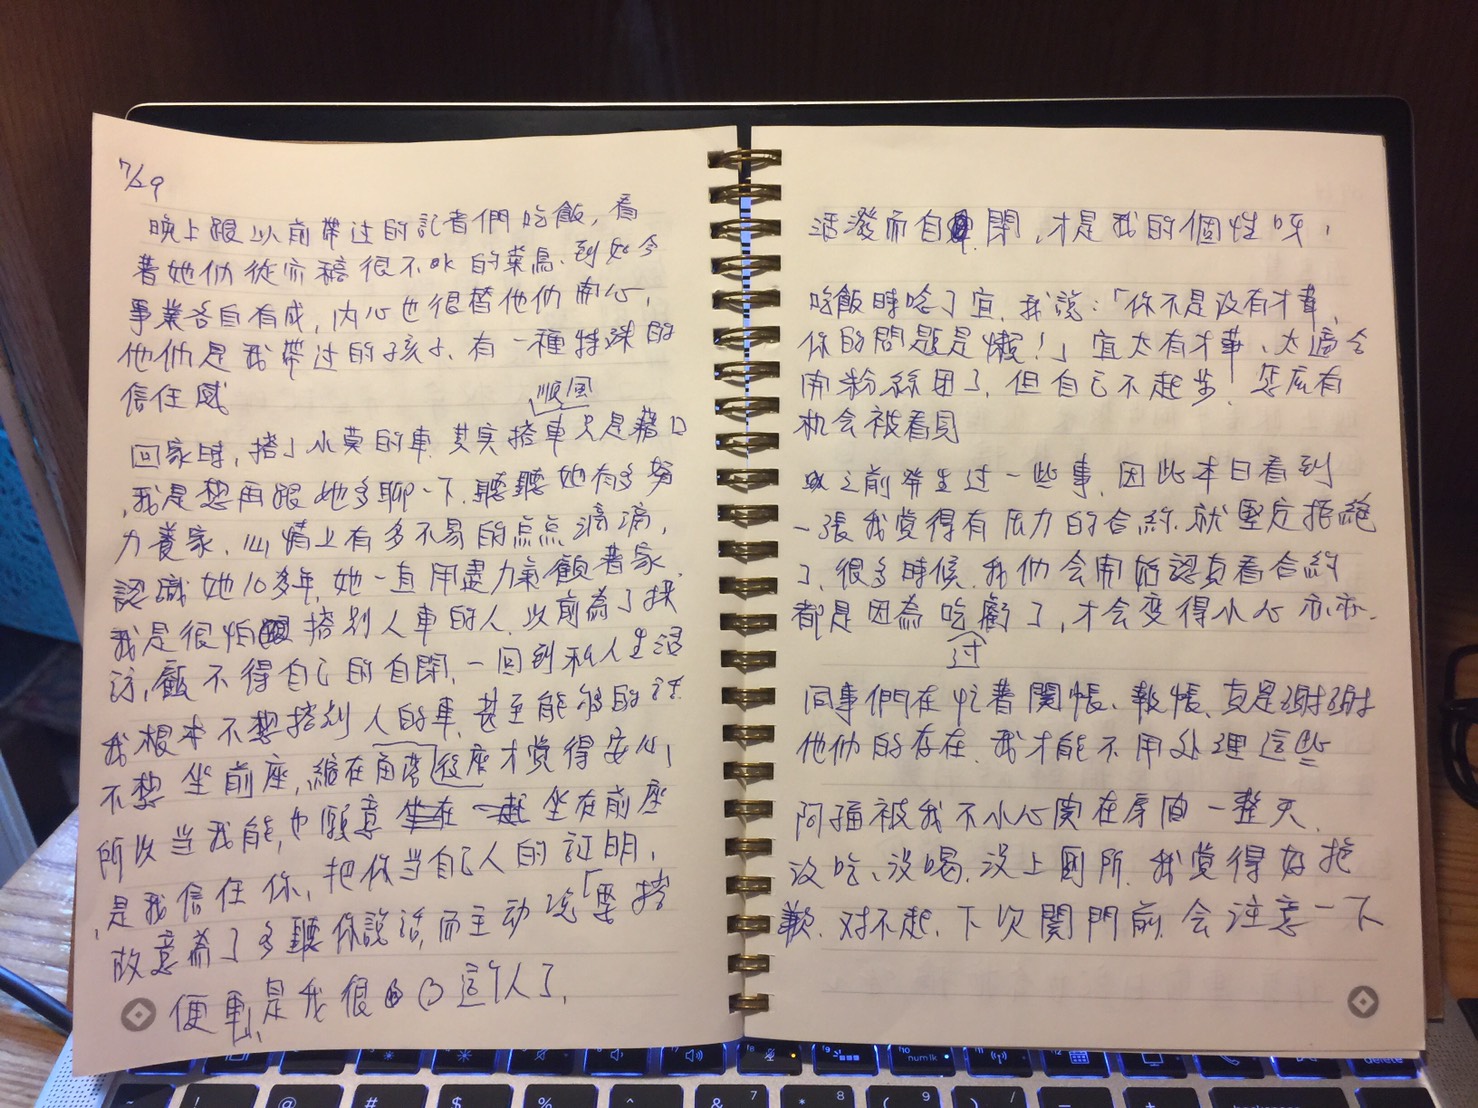 7/29
晚上跟以前帶过的記者們吃飯, 看
著她们從亦稿很不ok的菜鳥、到如今
事業各自有成, 內心也很替他们開心,
他们是我帶过的孩子、有一種特殊的
信任感
順風
回家時, 搭了小莫的車. 其实搭車只是藉口
,我是想再跟她多聊一下. 聽聽她有多努
力養家、心情上有多不易的点点滴滴,
認識她10多年, 她一直用盡力氣顧著家.
我是很怕搭別人車的人. 以前為了採
訪, 顧不得自己的自閉. 一回到私人生活
我根本不想搭別人的車. 甚至能够的话
不想坐前座, 縮在角落后座才覚得安心,
所以当我能, 也願意坐在前座
,是我信任你, 把你当自己人的証明,
故意為了多聽你說话, 而主动说「要搭
便車」, 是我很 這个人了,
活潑而自閉, 才是我的個性呀,
吃飯時唸了宜. 我說:「你不是没有才華,
你的問題是懶!」宜太有才華、太適合
開粉絲团了、但自己不起步! 怎庅有
机会被看見
之前発生过一些事, 因此本日看到
一張我覚得有压力的合約. 就堅定拒絶
了. 很多時候. 我们会開始認真看合約
都是因為吃虧了, 才会变得小心亦亦.
过
同事們在忙著関帳、報帳、真是謝謝
他们的存在. 我才能不用处理這些
阿福被我不小心関在房间一整天.
没吃、没喝. 没上厠所. 我覚得好抱
歉. 对不起. 下次関門前. 会注意一下